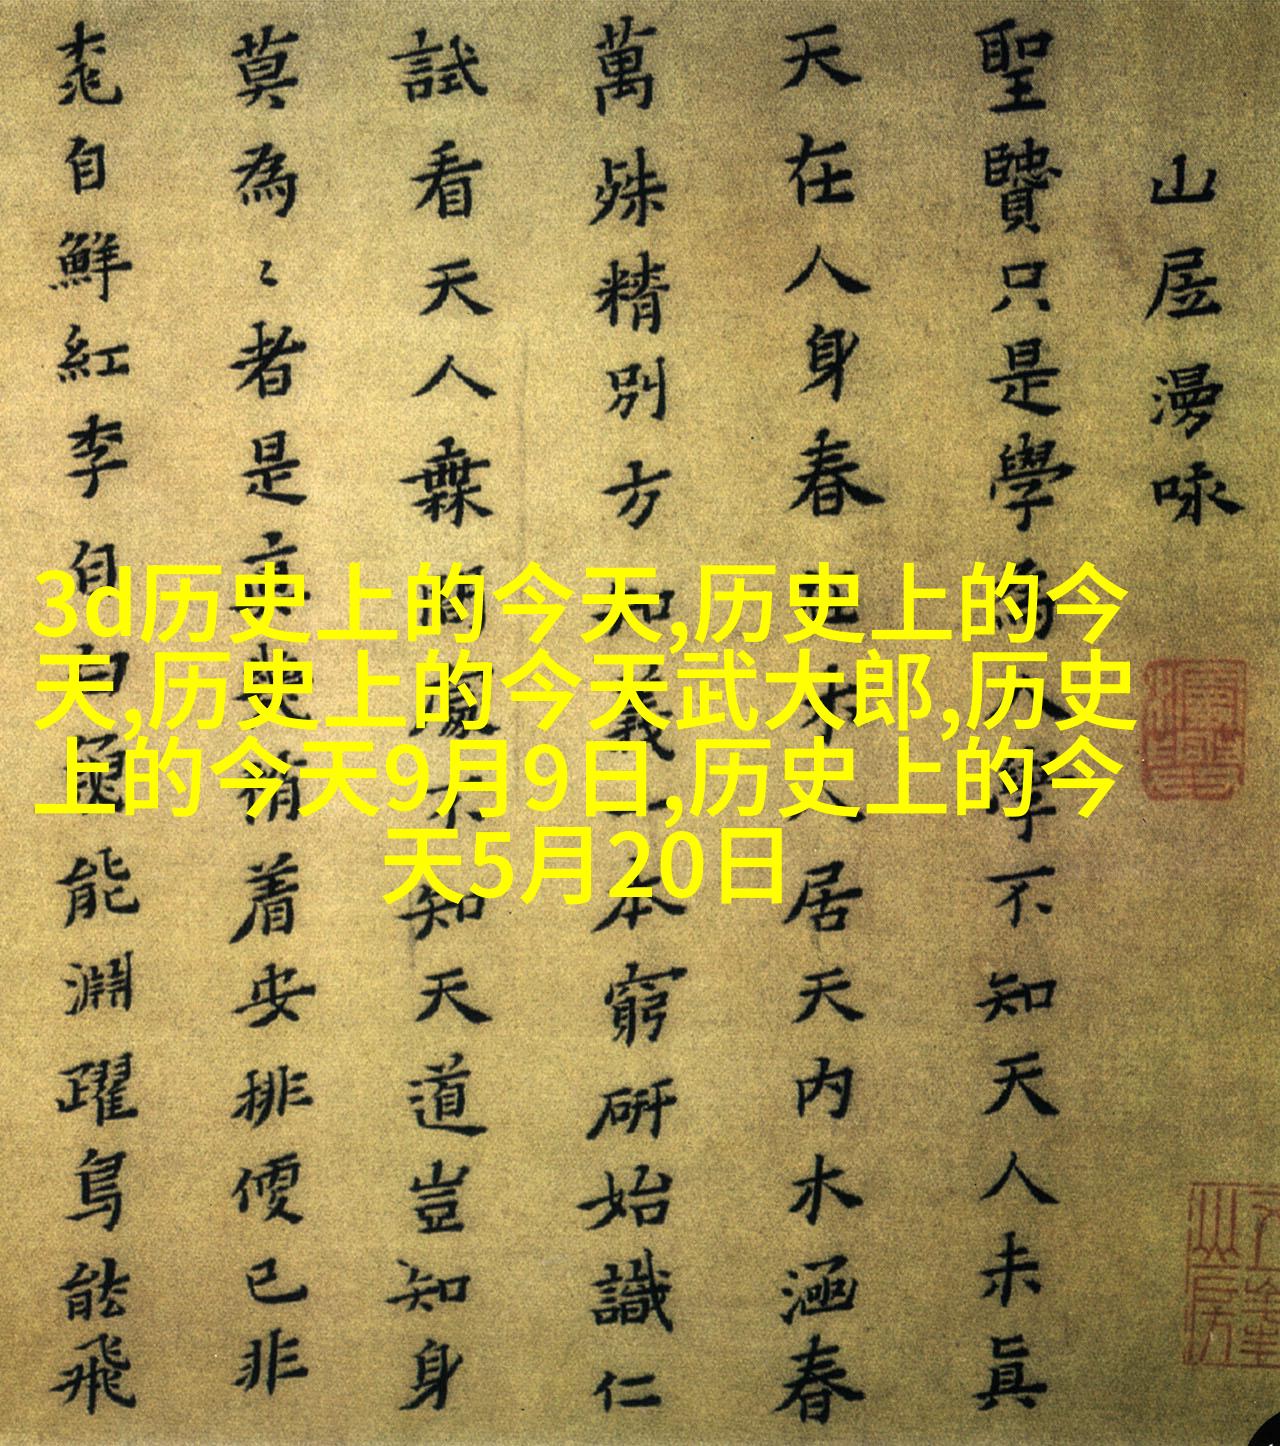 山居漫咏
聖賢只是學為人學不知天人未真
天在人身春在木人居天内木涵春
萬殊精別方知義一本窮研始識仁
試看天人無間處不知天道豈知身
莫為〻者是真稍着安排便已非
桃自鮮紅李自白能淵躍鳥能飛
3d历史上的今天,历史上的今
天,历史上的今天武大郎,历史
上的今天9月9日,历史上的今
天5月20日